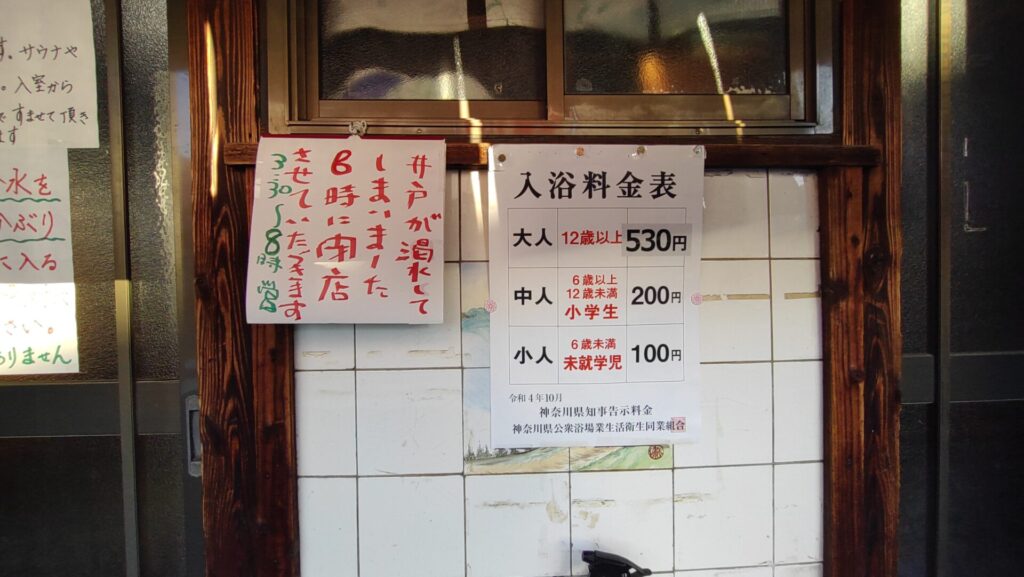 す。サウナや
。入室から
すませて頂き
ます
水を
かぶり
に入る
さい。
ありません
井戸が渇水して
しまいました
8時に閉店
させていただきます
3:30〜8時営
入浴料金表
大人 12歳以上 530円
中人 6歳以上
12歳未満
小学生 200円
小人 6歳未満
未就学児 100円
令和4年10月
神奈川県知事告示料金
神奈川県公衆浴場業生活衛生同業組合